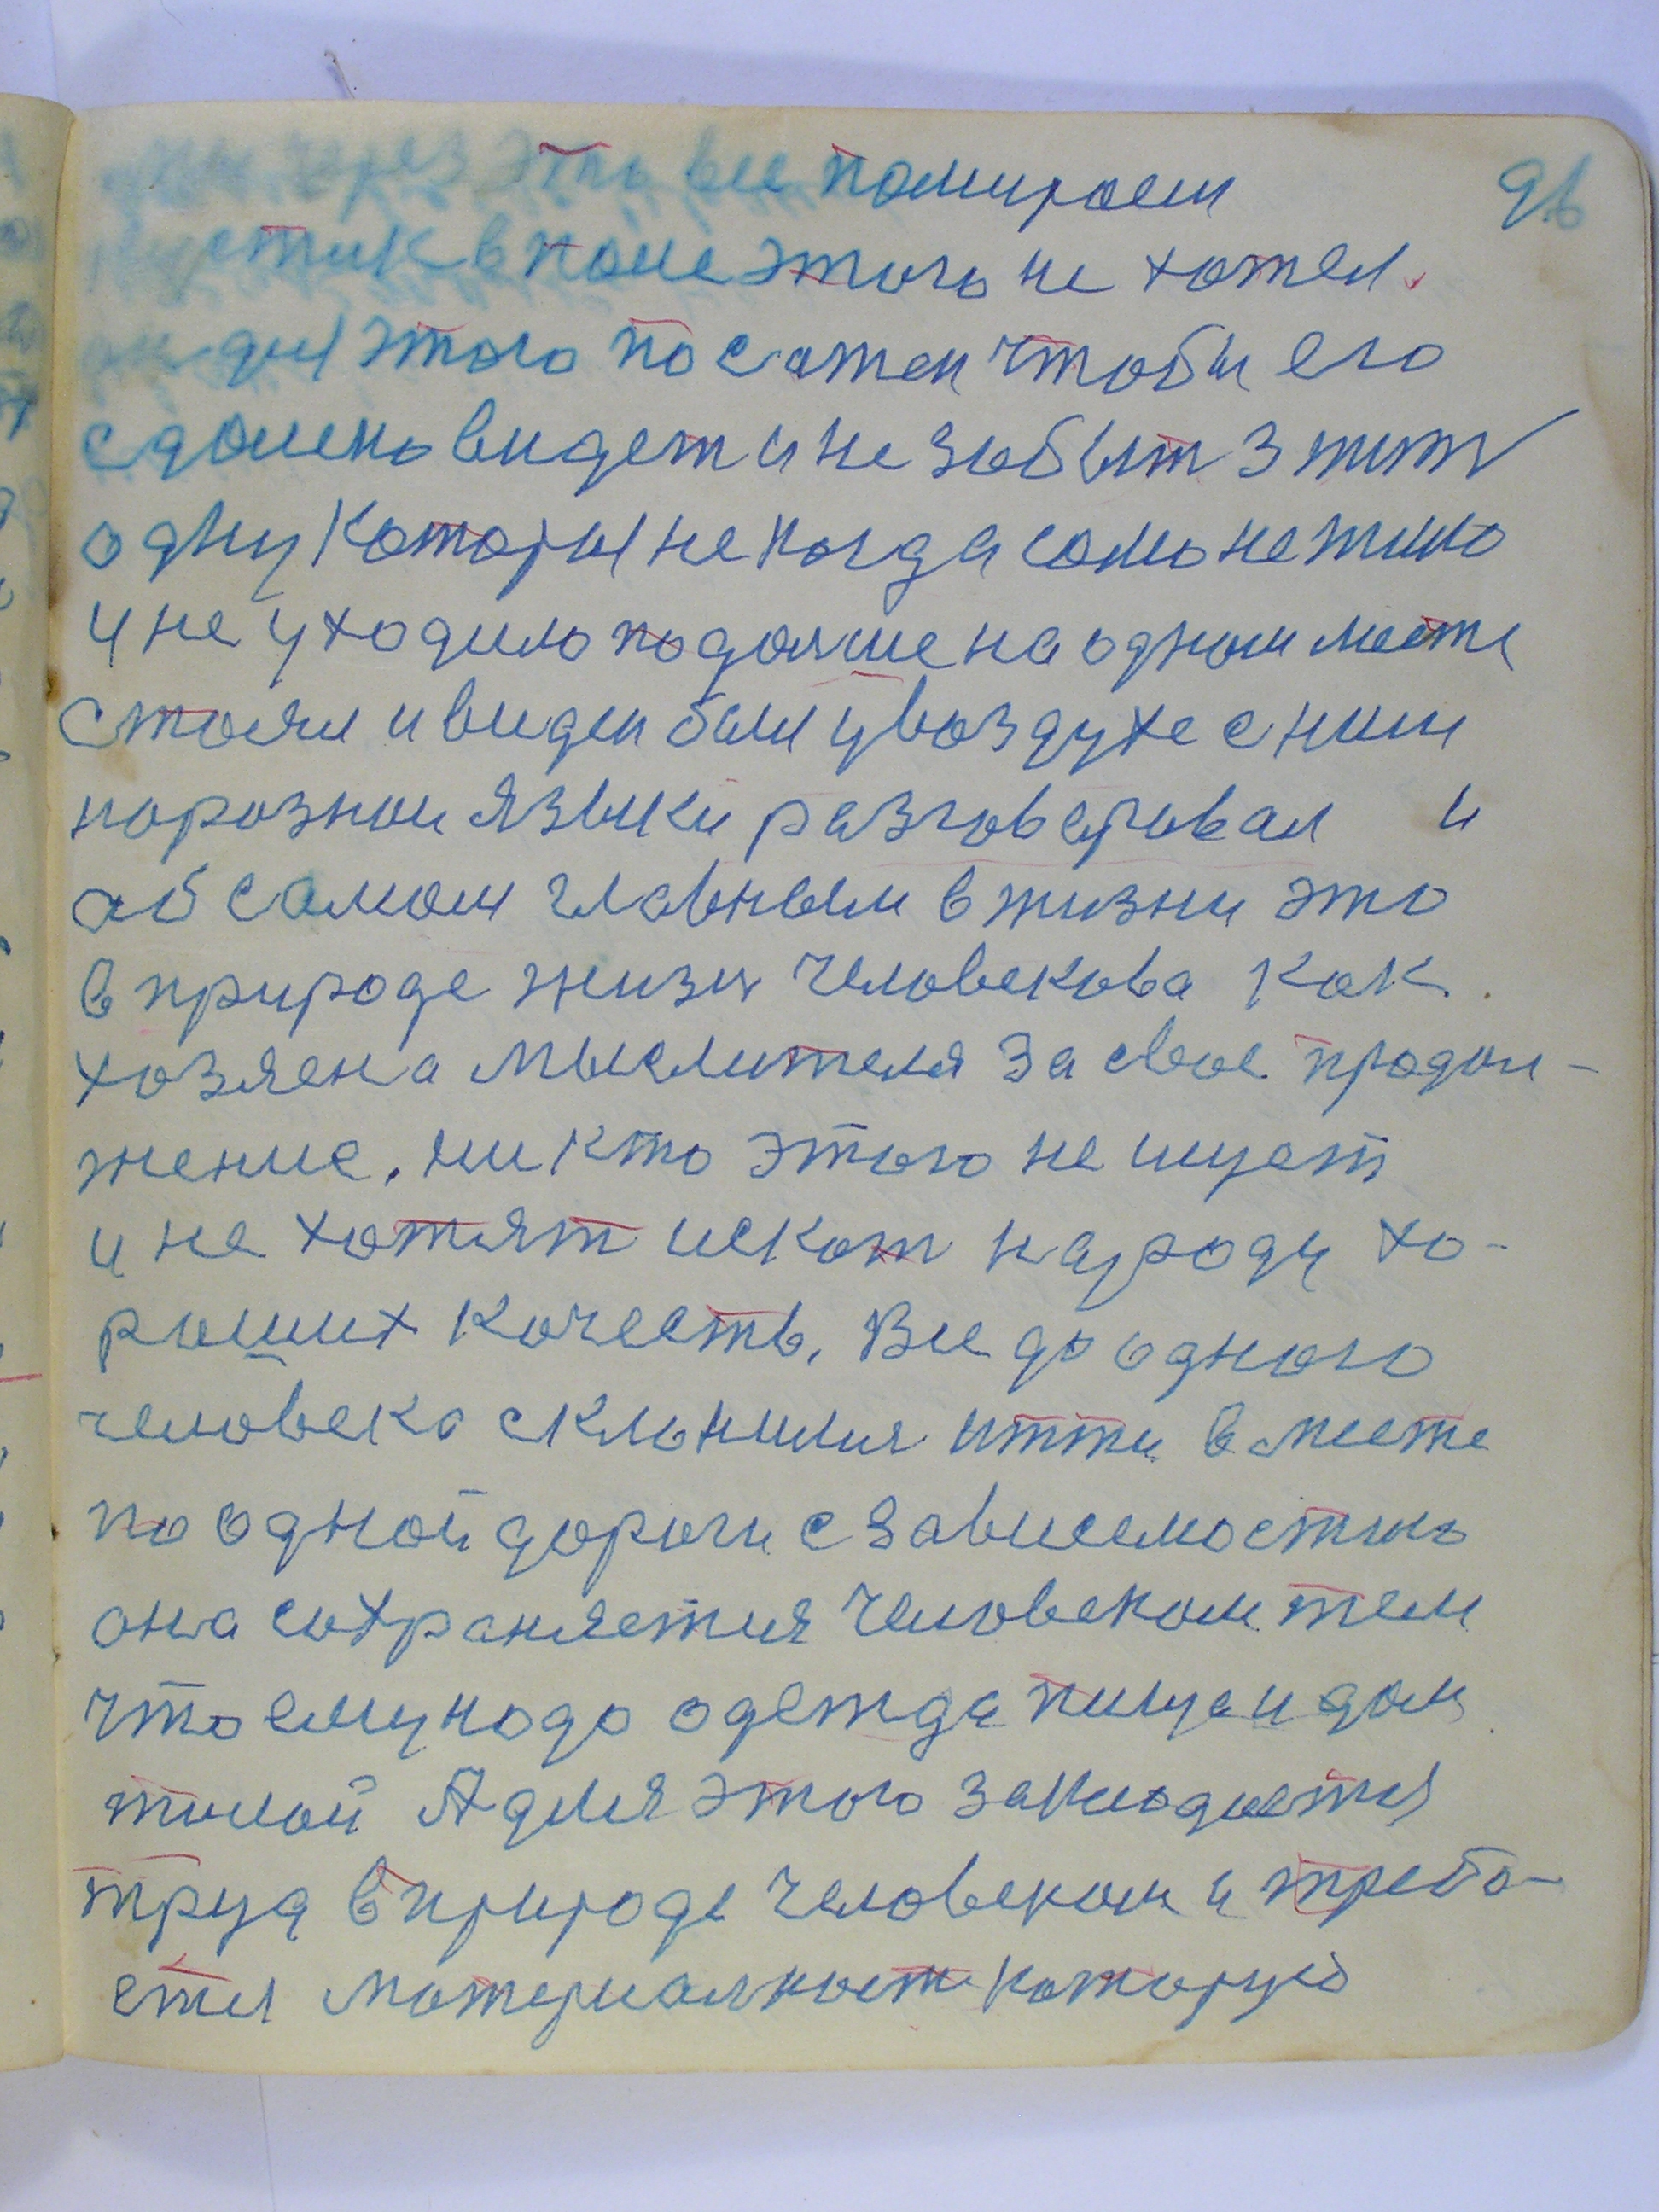 через это все помираем 96
кустик в поле этого не хотел.
для этого посажен чтобы его
сдалено видет и не забыт з тит
одну которыя некогда само не жило
и не уходило подалше на одном месте
стоял и виден был у воздухе с ним
поразном языки разговеривал и
об самом главным в жизни это
в природе жизн человекова как
хозяена мыслителя за свое продол-
жение. никто этого не ищет
и не хотят искат народу хо-
роших качеств. Все до одного
человека склонилися итти вместе
по одной дороги с зависемостю
она сохраняется человеком тем
что ему надо одежда пища и дом
жилой А для этого закладается
труд в природе человеком и требо-
ется материалност которую